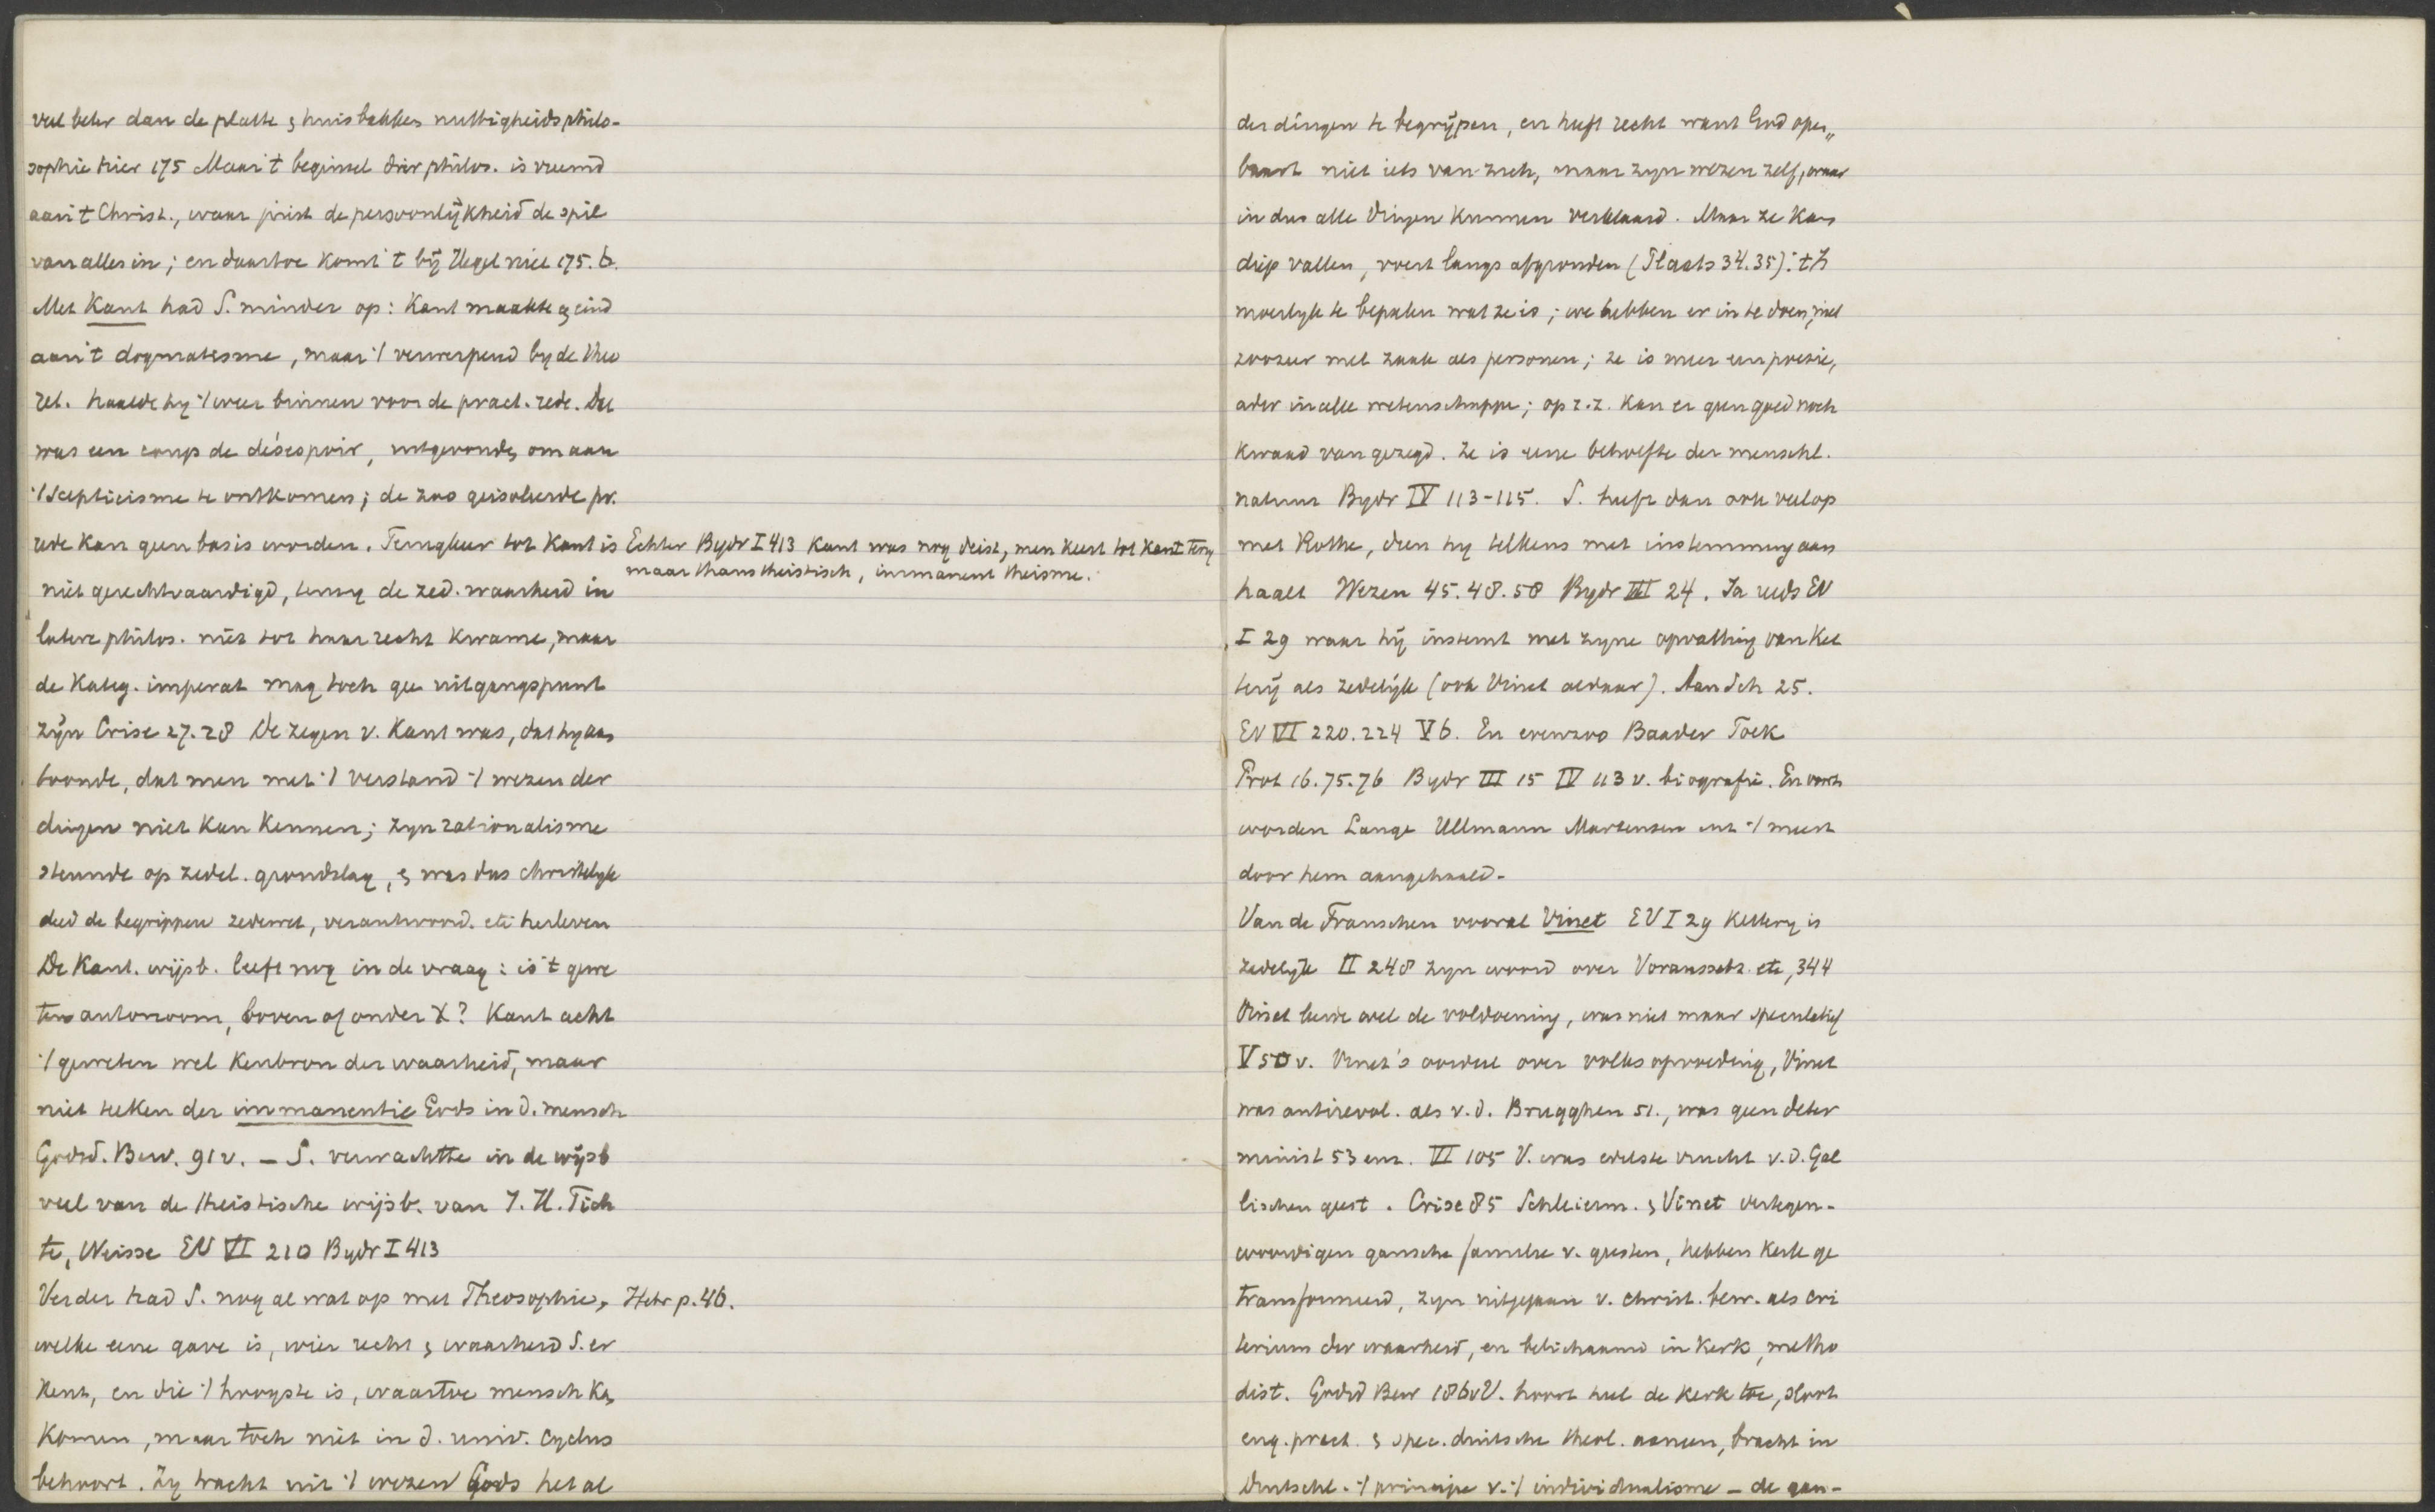 veel beter dan de platte & huisbakken nuttigheidsphilo-
sophie hier 175 Maar 't beginsel dier philos. is vreemd
aan 't Christ., waar juist de persoonlijkheid de spil
van alles in; en daartoe komt 't bij Hegel niet 175.6.
Met Kant had S. minder op: Kant maakte eind
aan 't dogmatisme, maar 't verwerpend by de theo
ret. haalde hy 't weer binnen voor de pract. rede. Dat
was een coup de désespoir, uitgevonden om aan
't scepticisme te ontkomen; de zoo geisoleerde pr.
rede kan geen basis worden. Terugkeer tot Kant is
Echter Bydr I 413 Kant was nog deist, men keert tot Kant terug
maar thans theistisch, immanent theisme.
niet gerechtvaardigd, tenzij de zed. waarheid in
latere philos. niet tot haar recht kwame, maar
de Kateg. imperat mag toch gee uitgangspunt
zijn Crise 27.28 De zegen v. Kant was, dat hy aan
toonde, dat men met 't verstand 't wezen der
dingen niet kan kennen; zyn rationalisme
steunde op zedel. grondslag, & was dus christelyk
deed de begrippen zedewet, verantwoord. etc herleven
De Kant. wijsb. leeft nog in de vraag: is 't gewe
ten autonoom, boven of onder X? Kant acht
't geweten wel kenbron der waarheid, maar
niet teeken der immanentie Gods in d. mensch
Godsd. Bew. 91 v. — S. verwachtte in de wijsb
veel van de theistische wijsb. van I. H. Fich
te, Weisse EV VI 210 Bydr I 413
Verder had S. nog al wat op met Theosophie, Hebr p. 46.
welke eene gave is, wier recht & waarheid S. er
kent, en die 't hoogste is, waartoe mensch kan
komen, maar toch niet in d. univ. cyclus
behoort. Zy tracht uit 't wezen Gods het al
der dingen te begrijpen, en heeft recht want God open„
baart niet iets van zich, maar zyn wezen zelf, waar
in dus alle dingen kunnen verklaard. Maar ze kan
diep vallen, voert langs afgronden (Plaats 34.35): 't is
moeilyk te bepalen wat ze is; we hebben er in te doen, niet
zoozeer met zaak als personen; ze is meer een poezie,
ader in alle wetenschappe; op z.z. kan er geen goed noch
kwaad van gezegd. Ze is eene behoefte der menschl.
natuur Bydr IV 113-115. S. heeft dan ook veel op
met Rothe, dien hy telkens met instemming aan
haalt Wezen 45.48.58 Bydr III 24. Ja reeds EV
I 29 waar hij instemt met zyne opvatting van Ket
terij als zedelijk (ook Vinet aldaar). Aan Sch 25.
EV VI 220.224 V 6. En evenzoo Baader Toek
Prot 16.75.76 Bydr III 15 IV 113 v. biografie. En voorts
worden Lange Ullmann Martensen ent 't meest
door hem aangehaald-
Van de Franschen vooral Vinet EV I 29 Kettery is
zedelyk II 248 zyn woord over Voraussetz. etc, 344
Vinet leerde wel de voldoening, was niet maar speculatief
V 50 v. Vinet's oordeel over volksopvoeding, Vinet
was antirevol. als v.d. Brugghen 51., was geen deter
minist 53 enz. VI 105 V. was edelste vrucht v.d. Gal
lischen geest. Crise 85 Schleierm. & Vinet vertegen-
woordigen gansche familie v. geesten, hebben Kerk ge
transformeerd, zyn uitgegaan v. christ. bew. als cri
terium der waarheid, en belichaamd in Kerk, metho
dist. Godsd Bew 186 v V. hoort heel de Kerk toe,
eng. pract. & spec. duitsche theol. aaneen, bracht in
Duitschl. 't principe v. 't individualisme — de gan-